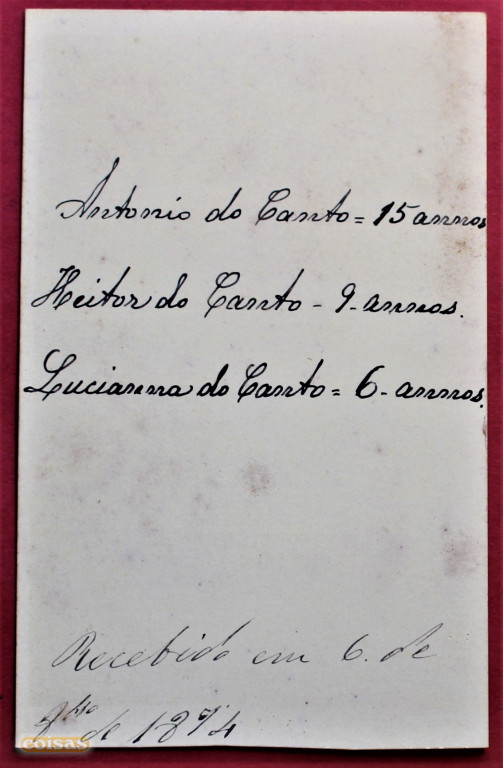 Antonio do Canto = 15 annos
Heitor do Canto - 9 - annos.
Lucianna do Canto = 6 - annos.
Recebido em 6. de
de 1874
COISAS